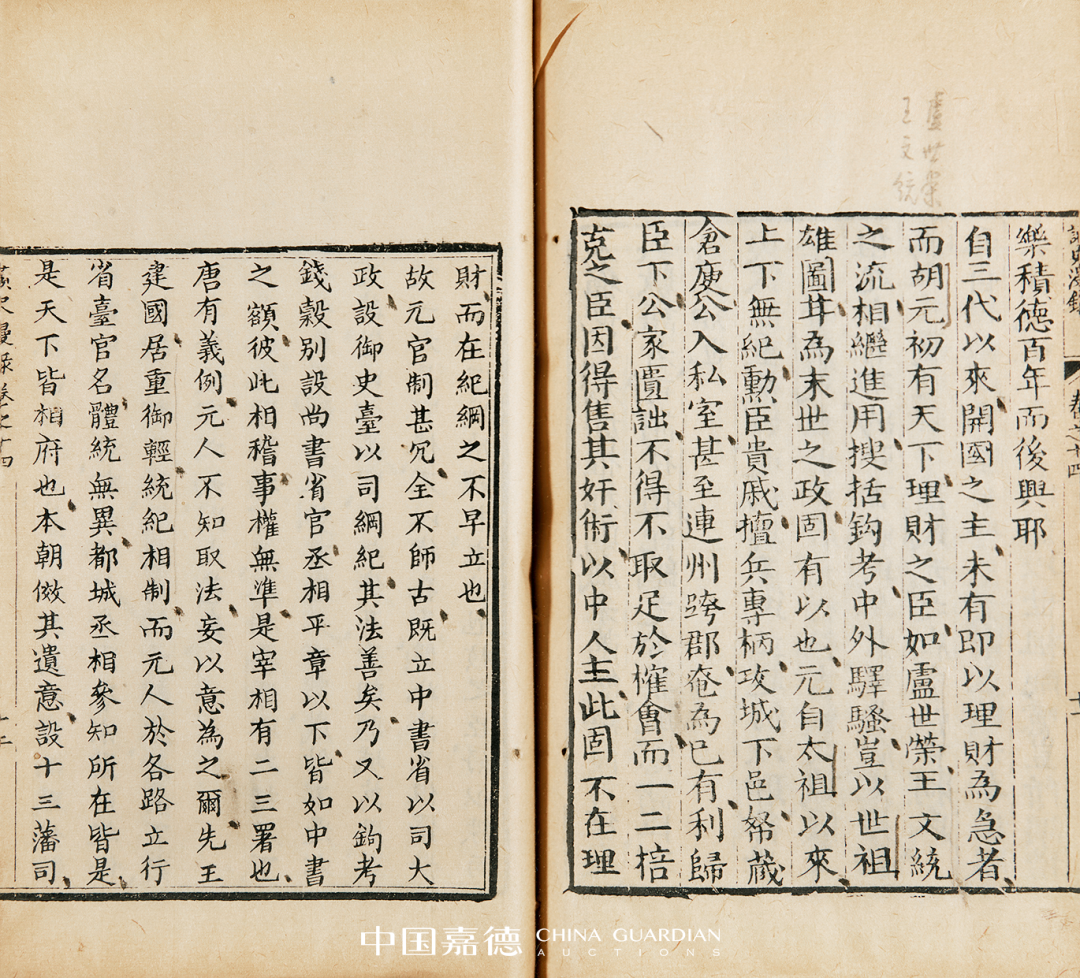 盧世榮
王文統
讀史漫錄 卷之十四
樂積德百年而後興耶
自三代以來開國之主未有即以理財為急者
而胡元初有天下理財之臣如盧世榮王文統
之流相繼進用搜括鈎考中外驛騷豈以世祖
雄圖其為末世之政固有以也元自太祖以來
上下無紀勳臣貴戚擅兵專柄攻城下邑帑藏
倉庾公入私室甚至連州跨郡奄為已有利歸
臣下公家匱詘不得不取足於榷會而一二掊
克之臣因得售其奸術以中人主此固不在理
財而在紀綱之不早立也
故元官制甚冗全不師古既立中書省以司大
政設御史臺以司綱紀其法善矣乃又以鉤考
錢穀別設尚書省官丞相平章以下皆如中書
之額彼此相稽事權無準是宰相有二三署也
唐有義例元人不知取法妄以意為之爾先王
建國居重御輕統紀相制而元人於各路立行
省臺官名體統無異都城丞相參知所在皆是
是天下皆相府也本朝倣其遺意設十三藩司
讀史漫錄卷之十四
中国嘉德 CHINA GUARDIAN
AUCTIONS